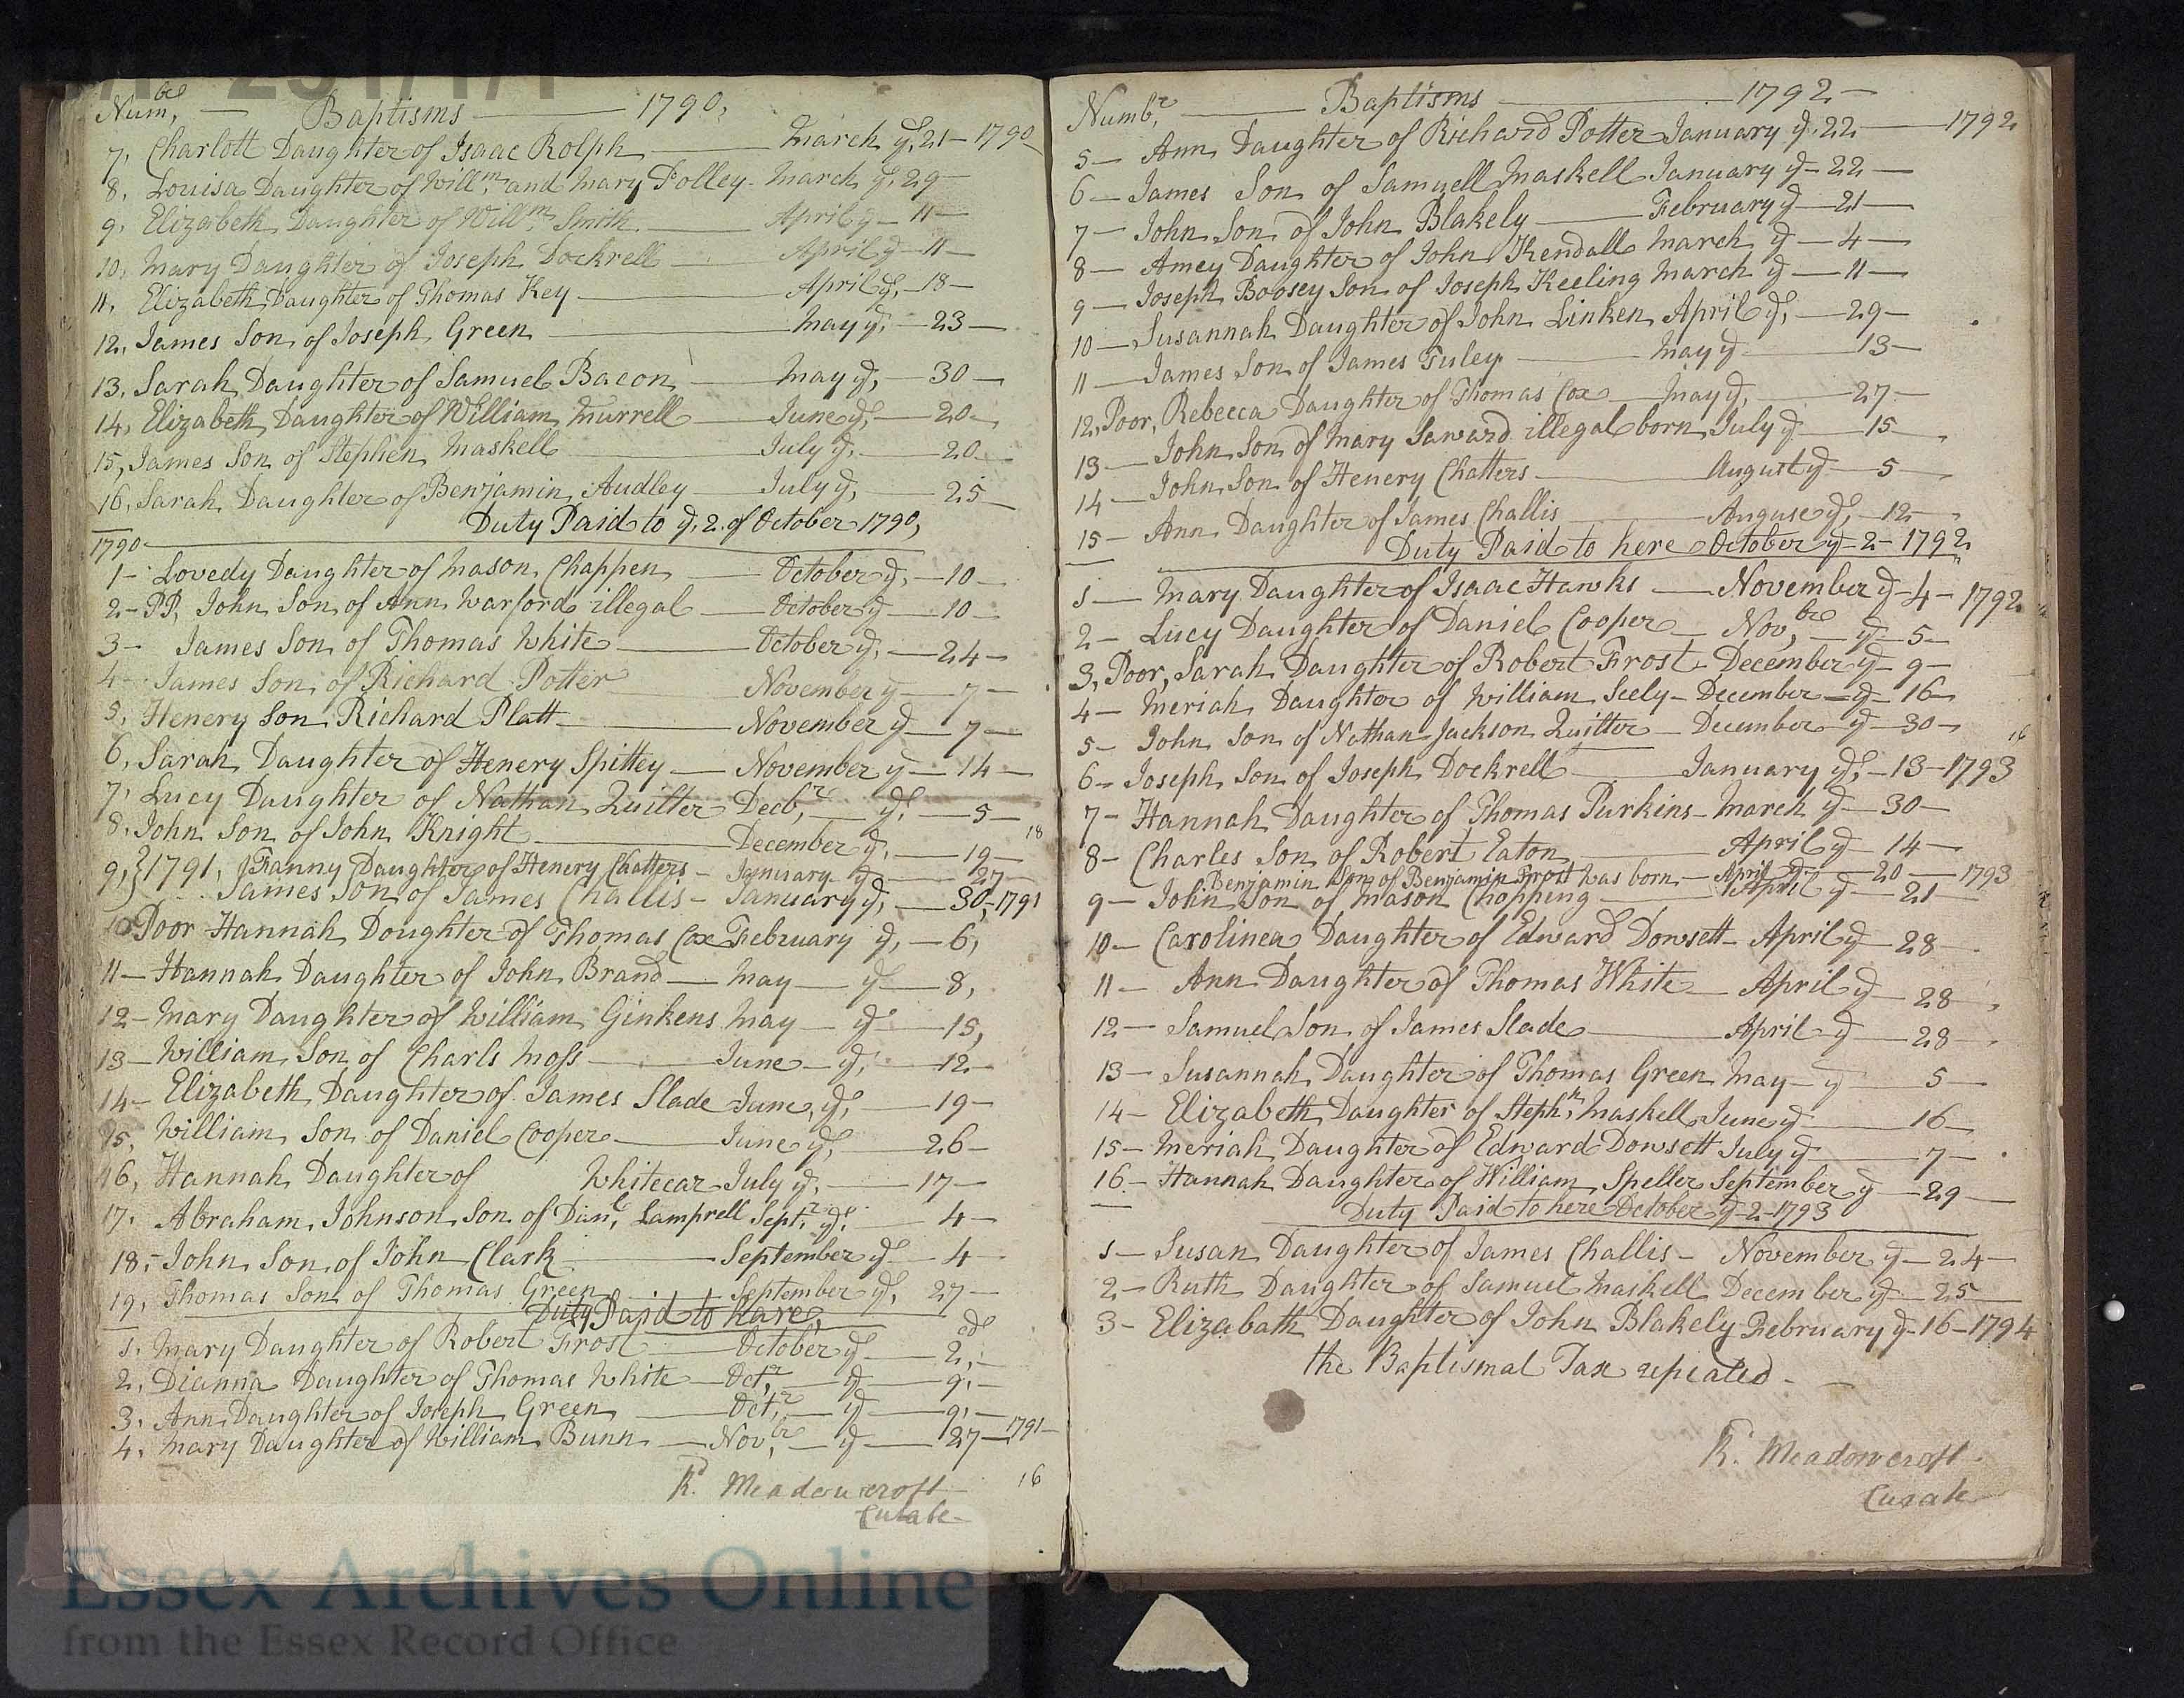 Num,ber — Baptisms — 1790,
7, Charlott Daughter of Isaac Rolph — March ye, 21 — 1790
8, Louisa Daughter of Willm, and Mary Folley — March ye, 29 —
9, Elizabeth Daughter of Willm, Smith — April ye — 11 —
10, Mary Daughter of Joseph Dockrell — April ye — 11 —
11, Elizabeth Daughter of Thomas Key — April ye, — 18 —
12, James Son of Joseph Green — May ye, — 23 —
13, Sarah Daughter of Samuel Bacon — May ye, — 30 —
14, Elizabeth Daughter of William Murrell — June ye, — 20 —
15, James Son of Stephen Maskell — July ye, — 20 —
16, Sarah Daughter of Benjamin Audley — July ye, — 25 —
Duty Paid to ye, 2, of October 1790,
1790
1 — Lovedy Daughter of Mason Chappen — October ye, — 10 —
2 — PP, John Son of Ann Warford illegal — October ye — 10 —
3 — James Son of Thomas White — October ye, — 24 —
4 — James Son of Richard Potter — November ye — 7 —
5, Henery Son Richard Platt — November ye — 7 —
6, Sarah Daughter of Henery Spittey — November ye — 14 —
7, Lucy Daughter of Nathan Quilter Decbr, — ye, — 5 —
8, John Son of John Knight — December ye, — 19 — 18
9,} 1791, Fanny Daughter of Henery Chatters — January ye — 27 —
James Son of James Challis — January ye, — 30, — 1791
10 Poor Hannah Doughter of Thomas Cox February ye, — 6,
11 — Hannah Daughter of John Brand — May — ye — 8,
12 — Mary Daughter of William Ginkens May — ye — 15,
13 — William Son of Charls Moss — June — ye, — 12 —
14 — Elizabeth Daughter of James Slade June, ye, — 19 —
15, William Son of Daniel Cooper — June ye, — 26 —
16, Hannah Daughter of Whitecar July ye, — 17 —
17, Abraham Johnson Son of Danl, Lamprell Septr, ye, — 4 —
18, — John Son of John Clark — September ye — 4 —
19, Thomas Son of Thomas Green — September ye, 27 —
Duty Paid to hare,
1, Mary Daughter of Robert Frost — October ye — 2,ed —
2, Dianna Daughter of Thomas White — Octr, — ye — 9, —
3, Ann Daughter of Joseph Green — Octr, — ye — 9, —
4, Mary Daughter of William Bunn — Novbr, — ye — 27 — 1791 —
Rd. Meadowcroft 16
Curate —
Numbr, — Baptisms — 1792 —
5 — Ann Daughter of Richard Potter January ye, 22 — 1792
6 — James Son of Samuell Maskell January ye — 22 —
7 — John Son of John Blakely — February ye — 21 —
8 — Amey Daughter of John Kendall March ye — 4 —
9 — Joseph Boosey Son of Joseph Keeling March ye — 11 —
10 — Susannah Daughter of John Linken April ye, — 29 —
11 — James Son of James Tuley — May ye — 13 —
12, Poor, Rebecca Daughter of Thomas Cox — May ye, — 27 —
13 — John Son of Mary Saward illegal born July ye — 15 —
14 — John Son of Henery Chatters — August ye — 5 —
15 — Ann Daughter of James Challis — Anguse ye, — 12 —
Duty Paid to here October ye — 2 — 1792
1 — Mary Daughter of Isaac Hawks — November ye — 4 — 1792
2 — Lucy Daughter of Daniel Cooper — Nov,bre — ye — 5 —
3, Poor, Sarah Daughter of Robert Frost — December ye — 9 —
4 — Meriah Daughter of William Seely — December — ye — 16 —
5 — John Son of Nathan Jackson Quilter — December — ye — 30 —
16
6 — Joseph Son of Joseph Dockrell — January ye, — 13 — 1793
7 — Hannah Daughter of Thomas Purkins — March ye — 30 —
8 — Charles Son of Robert Eaton — April ye — 14 —
Benjamin Son of Benjamin Frost was born — April ye — 20 — 1793
9 — John Son of Mason Chopping — April ye — 21 —
10 — Carolinea Daughter of Edward Dowsett — April ye — 28 —
11 — Ann Daughter of Thomas White — April ye — 28 —
12 — Samuel Son of James Slade — April — ye — 28 —
13 — Susannah Daughter of Thomas Green May — ye — 5 —
14 — Elizabeth Daughter of Stephn, Maskell June ye — 16 —
15 — Meriah Daughter of Edward Dowsett July ye — 7 —
16 — Hannah Daughter of William Speller September ye — 29 —
Duty Paid to here October ye — 2 — 1793
1 — Susan Daughter of James Challis — November ye — 24 —
2 — Ruth Daughter of Samuel Maskell December ye — 25
3 — Elizabath Daughter of John Blakely February ye — 16 — 1794
the Baptismal Tax repealed —
Rd. Meadowcroft
Curate
Essex Archives Online
from the Essex Record Office